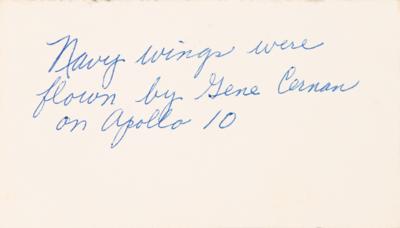 Navy wings were
flown by Gene Cernan
on Apollo 10